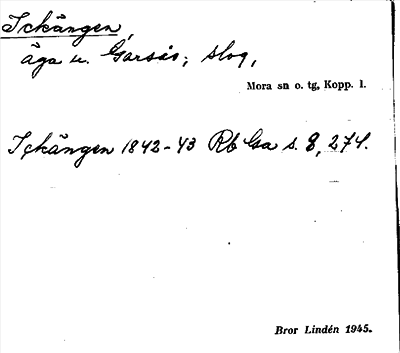 Ickängen,
äga u. Garsås; slog,
Mora sn o. tg, Kopp. l.
Ickängen 1842-43 Rb Ga s. 8, 274.
Bror Lindén 1945.